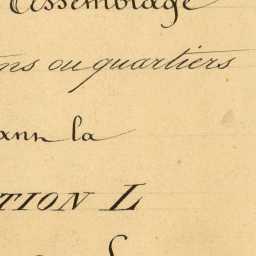 Assemblage
ns ou quartiers
dans la
TION L